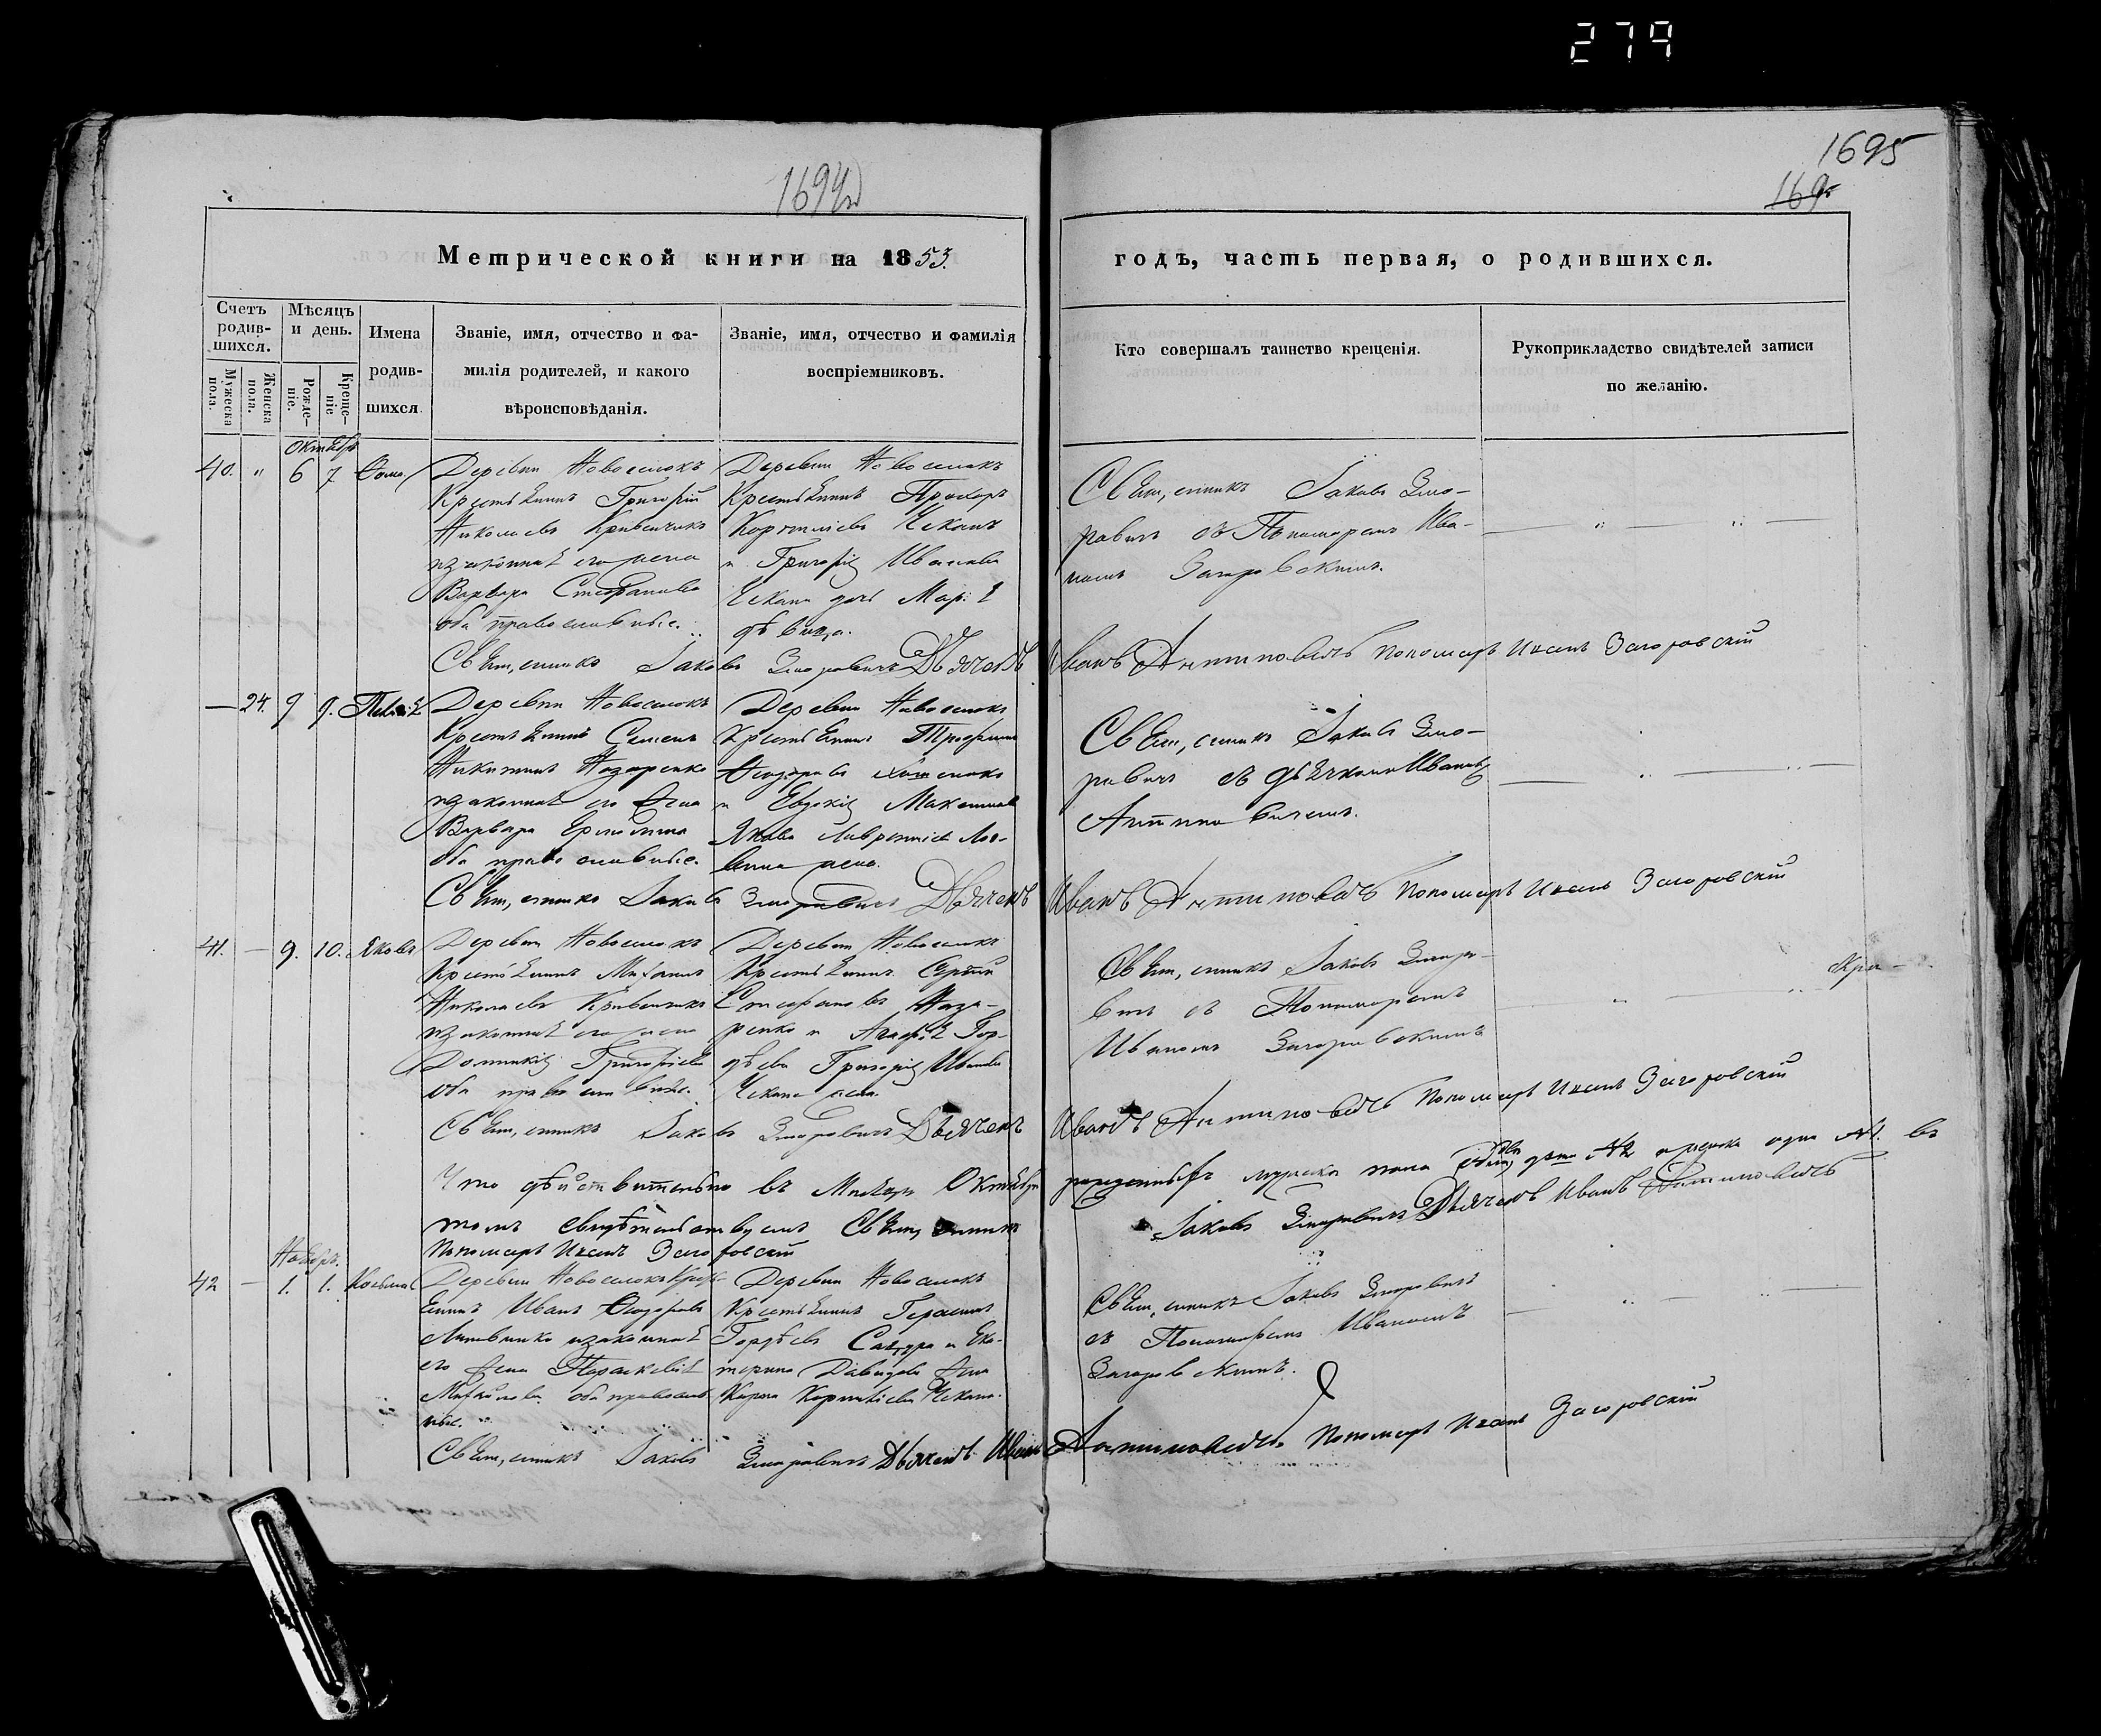 279
1694
1695
169
Метрической книги на 1853. годъ, часть первая, о родившихся.
Счетъ родив-шихся.
Мужеска пола.
Женска пола.
Мѣсяцъ и день.
Рожде-ніе.
Креще-ніе
Имена родив-шихся
Званіе, имя, отчество и фа-
милія родителей, и какого
вѣроисповѣданія.
Званіе, имя, отчество и фамилія
воспріемниковъ.
Кто совершалъ таинство крещенія.
Рукоприкладство свидѣтелей записи
по желанію.
Октябрь
40. " 6 7 Фома
Деревни Новоселокъ
Крестьянинъ Григорій
Николаевъ Кривенчикъ
изаконная его жена
Варвара Стефанова
оба православные.
Деревни Новоселокъ
Крестьянинъ Прохоръ
Корниліевъ Чеканъ
и Григорія Иванова
Чекана дочь Марія
дѣвица.
Священникъ Іаковъ Змо-
ровичъ съ Пономаремъ Ива-
номъ Загоровскимъ.
Священникъ Іаковъ Зморовичъ Дьячекъ Иванъ Антиповичъ Пономарь Иванъ Загоровскій
— 24. 9 9. Пелагія
Деревни Новоселокъ
Крестьянинъ Семенъ
Никитинъ Назаренко
изаконная его жена
Варвара
оба православные.
Деревни Новоселокъ
Крестьянинъ Трофимъ
Феодоровъ
и Евдокія Максимова
Якова Лаврентіева
жена.
Священникъ Іаковъ Змо-
ровичъ съ дьячкомъ Иваномъ
Антиповичемъ.
Священникъ Іаковъ Зморовичъ Дьячекъ Иванъ Антиповичъ Пономарь Иванъ Загоровскій
41. — 9. 10. Яковъ
Деревни Новоселокъ
Крестьянинъ Михаилъ
Николаевъ Кривенчикъ
изаконная его жена
Домникія Григоріева
оба православные.
Деревни Новоселокъ
Крестьянинъ Сергій
Стефановъ Наза-
ренко и Агафія Гор-
дѣева Григорія Иванова
Чекана жена.
Священникъ Іаковъ Зморо-
вичъ съ Пономаремъ
Иваномъ Загоровскимъ
Священникъ Іаковъ Зморовичъ Дьячекъ Иванъ Антиповичъ Пономарь Иванъ Загоровскій
Что дѣйствительно въ Мѣсяцѣ Октябрѣ рожденныхъ мужеска пола два № 2 а женска одна № 1. въ
томъ свидѣтельствуемъ Священникъ Іаковъ Зморовичъ Дьячекъ Иванъ Антиповичъ
Пономарь Иванъ Загоровскій
Ноябрь.
42 — 1. 1. Косьма
Деревни Новоселокъ Кресть-
янинъ Иванъ Феодоровъ
Литвинко изаконная
его жена Параскевія
Михайлова оба православ-
ные.
Деревни Новоселокъ
Крестьянинъ Герасимъ
Гордѣевъ и Ека-
терина Давидова жена
Карпа Корниліева Чекана.
Священникъ Іаковъ Зморовичъ
съ Пономаремъ Иваномъ
Загоровскимъ.
Священникъ Іаковъ Зморовичъ Дьячекъ Иванъ Антиповичъ Пономарь Иванъ Загоровскій